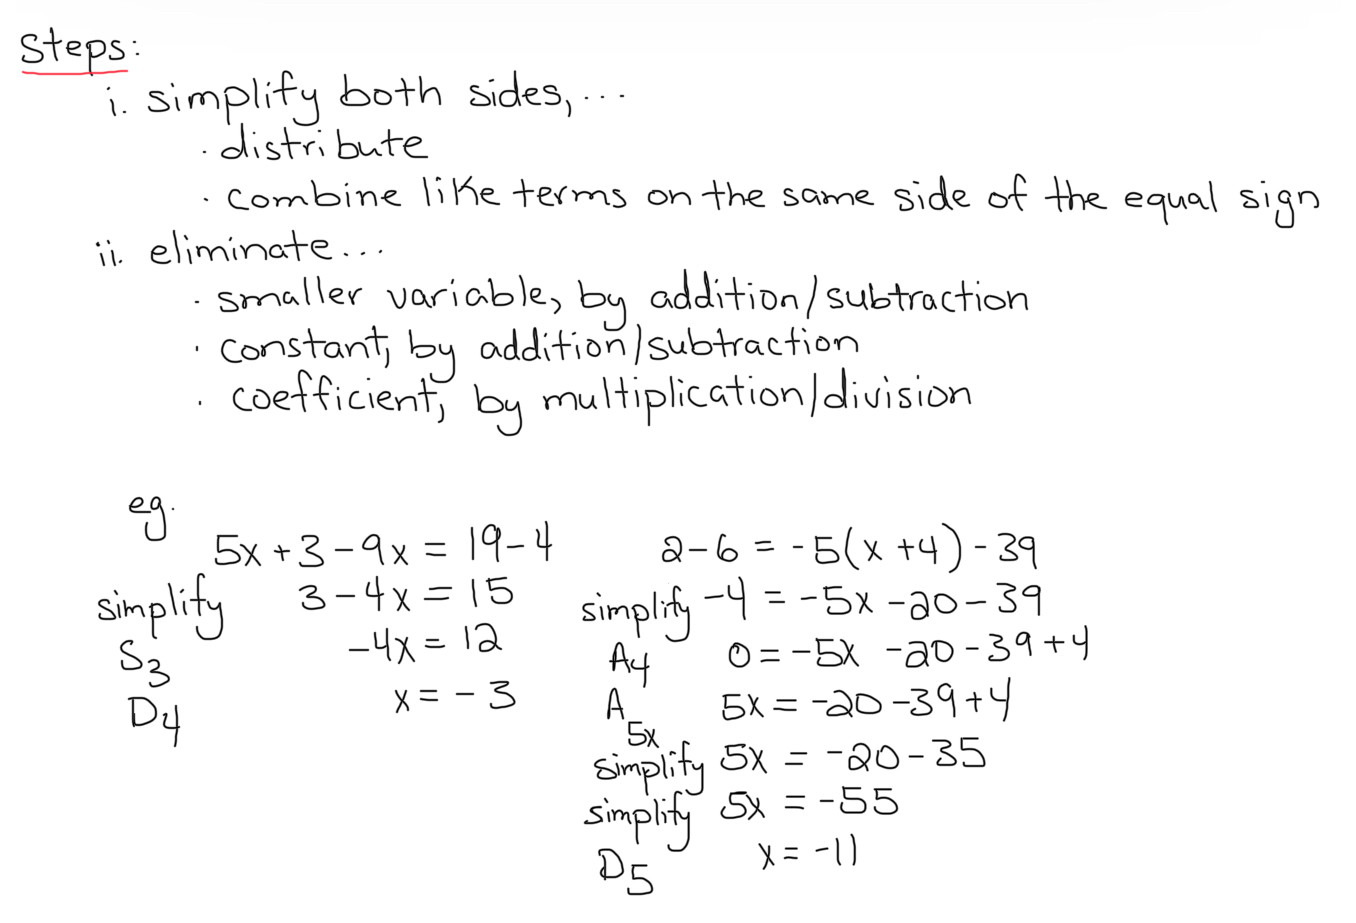 Steps:
i. simplify both sides, ...
· distribute
· combine like terms on the same side of the equal sign
ii. eliminate...
· smaller variable, by addition/subtraction
· constant, by addition/subtraction
· coefficient, by multiplication/division
eg.
5x + 3 - 9x = 19 - 4
simplify 3 - 4x = 15
S3 -4x = 12
D4 x = -3
2 - 6 = -5(x + 4) - 39
simplify -4 = -5x - 20 - 39
A4 0 = -5x - 20 - 39 + 4
A5x 5x = -20 - 39 + 4
simplify 5x = -20 - 35
simplify 5x = -55
D5 x = -11